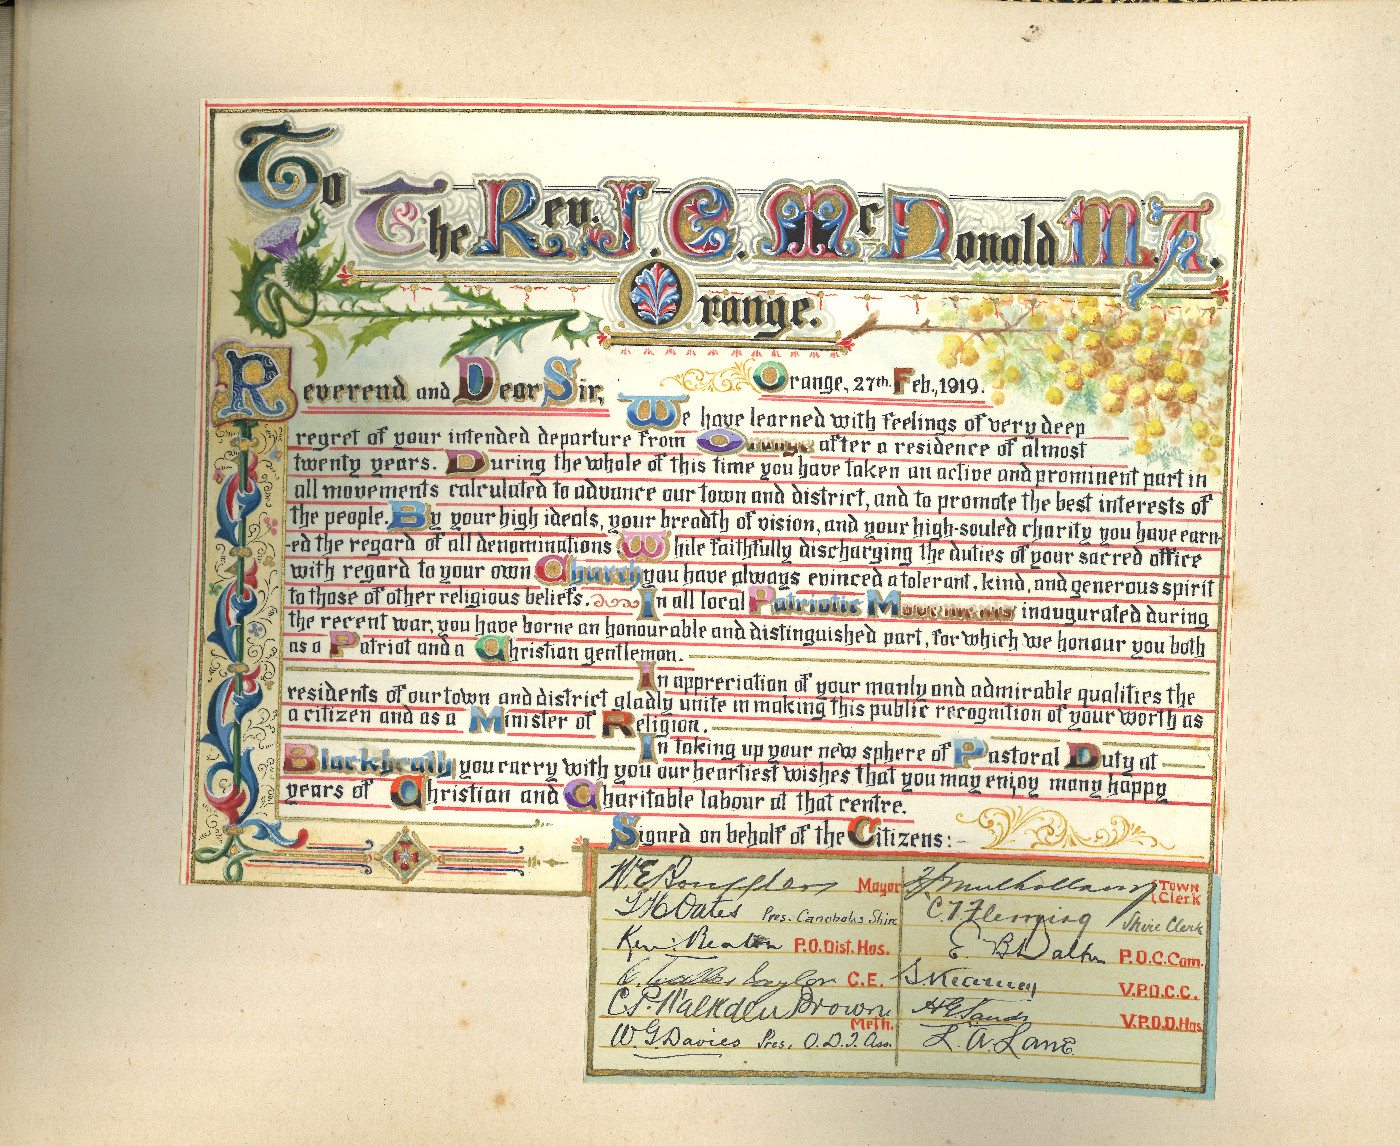 To The Rev. J. C. McDonald M.A.
Orange.
Orange, 27th. Feb., 1919.
Reverend and Dear Sir,
We have learned with feelings of very deep
regret of your intended departure from Orange after a residence of almost
twenty years. During the whole of this time you have taken an active and prominent part in
all movements calculated to advance our town and district, and to promote the best interests of
the people. By your high ideals, your breadth of vision, and your high-souled charity you have earn-
-ed the regard of all denominations While faithfully discharging the duties of your sacred office
with regard to your own Church you have always evinced a tolerant, kind, and generous spirit
to those of other religious beliefs. In all local Patriotic Movements inaugurated during
the recent war, you have borne an honourable and distinguished part, for which we honour you both
as a Patriot and a Christian gentleman.
In appreciation of your manly and admirable qualities the
residents of our town and district gladly unite in making this public recognition of your worth as
a citizen and as a Minister of Religion.
In taking up your new sphere of Pastoral Duty at
Blackheath you carry with you our heartiest wishes that you may enjoy many happy
years of Christian and Charitable labour at that centre.
Signed on behalf of the Citizens:-
W. E. Bouffler Mayor
F J Mulholland Town Clerk
Oates Pres. Canobolas Shire
C. T. Fleming Shire Clerk
P.O. Dist. Hos.
E B Walton P.O.C. Com.
Taylor C.E.
Kearney V.P.O.C.C.
C. P. Walkden Brown Meth.
Sands V.P.O.D. Hos
W. G. Davies Pres. O.D.I. Ass.
L. A. Lane